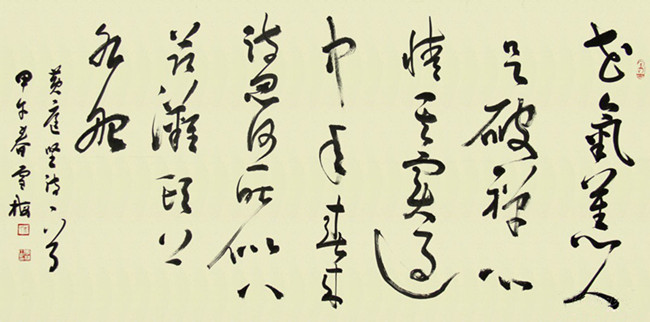 花氣薰人
欲破禪心
情其實過
中年春來
詩思何所似八
節灘頭上
水船
黃庭堅詩一首
甲午春雪梅